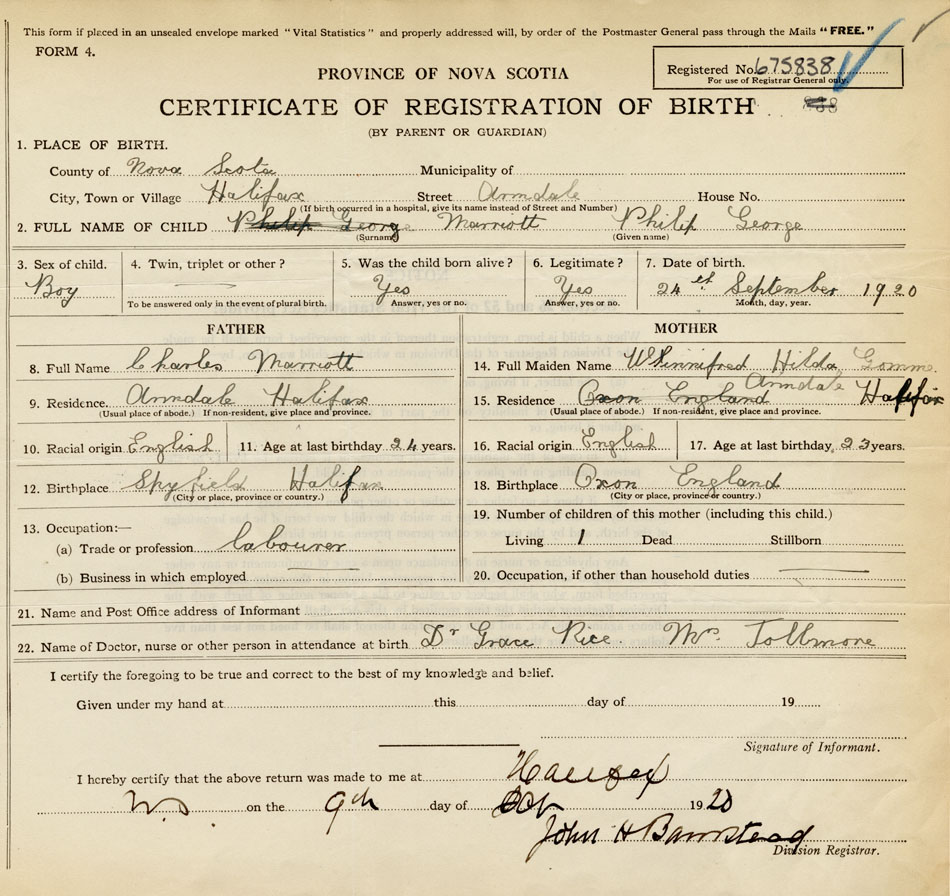 This form if placed in an unsealed envelope marked "Vital Statistics" and properly addressed will, by order of the Postmaster General pass through the Mails "FREE."
FORM 4.
Registered No. 675838
For use of Registrar General only.
PROVINCE OF NOVA SCOTIA
CERTIFICATE OF REGISTRATION OF BIRTH
(BY PARENT OR GUARDIAN)
1. PLACE OF BIRTH.
County of Nova Scota Municipality of
City, Town or Village Halifax Street Armdale House No.
(If birth occurred in a hospital, give its name instead of Street and Number)
2. FULL NAME OF CHILD Philip George Marriott Philip George
(Surname) (Given name)
3. Sex of child. 4. Twin, triplet or other? 5. Was the child born alive? 6. Legitimate? 7. Date of birth.
Boy Yes Yes 24th September 1920
To be answered only in the event of plural birth. Answer, yes or no. Answer, yes or no. Month, day, year.
FATHER MOTHER
8. Full Name Charles Marriott 14. Full Maiden Name Whinnifred Hilda Gomme.
9. Residence. Armdale Halifax 15. Residence Oxon England Armdale Halifax
(Usual place of abode.) If non-resident, give place and province. (Usual place of abode.) If non-resident, give place and province.
10. Racial origin English 11. Age at last birthday 24 years. 16. Racial origin English 17. Age at last birthday 23 years.
12. Birthplace Spyfield Halifax 18. Birthplace Oxon England
(City or place, province or country.) (City or place, province or country.)
13. Occupation:— 19. Number of children of this mother (including this child.)
(a) Trade or profession labourer Living 1 Dead Stillborn
(b) Business in which employed 20. Occupation, if other than household duties
21. Name and Post Office address of Informant
22. Name of Doctor, nurse or other person in attendance at birth Dr Grace Rice. Mrs. Tollmore
I certify the foregoing to be true and correct to the best of my knowledge and belief.
Given under my hand at this day of 19
Signature of Informant.
I hereby certify that the above return was made to me at Halifax
N.S on the 9th day of Oct 1920
John H Barnstead
Division Registrar.